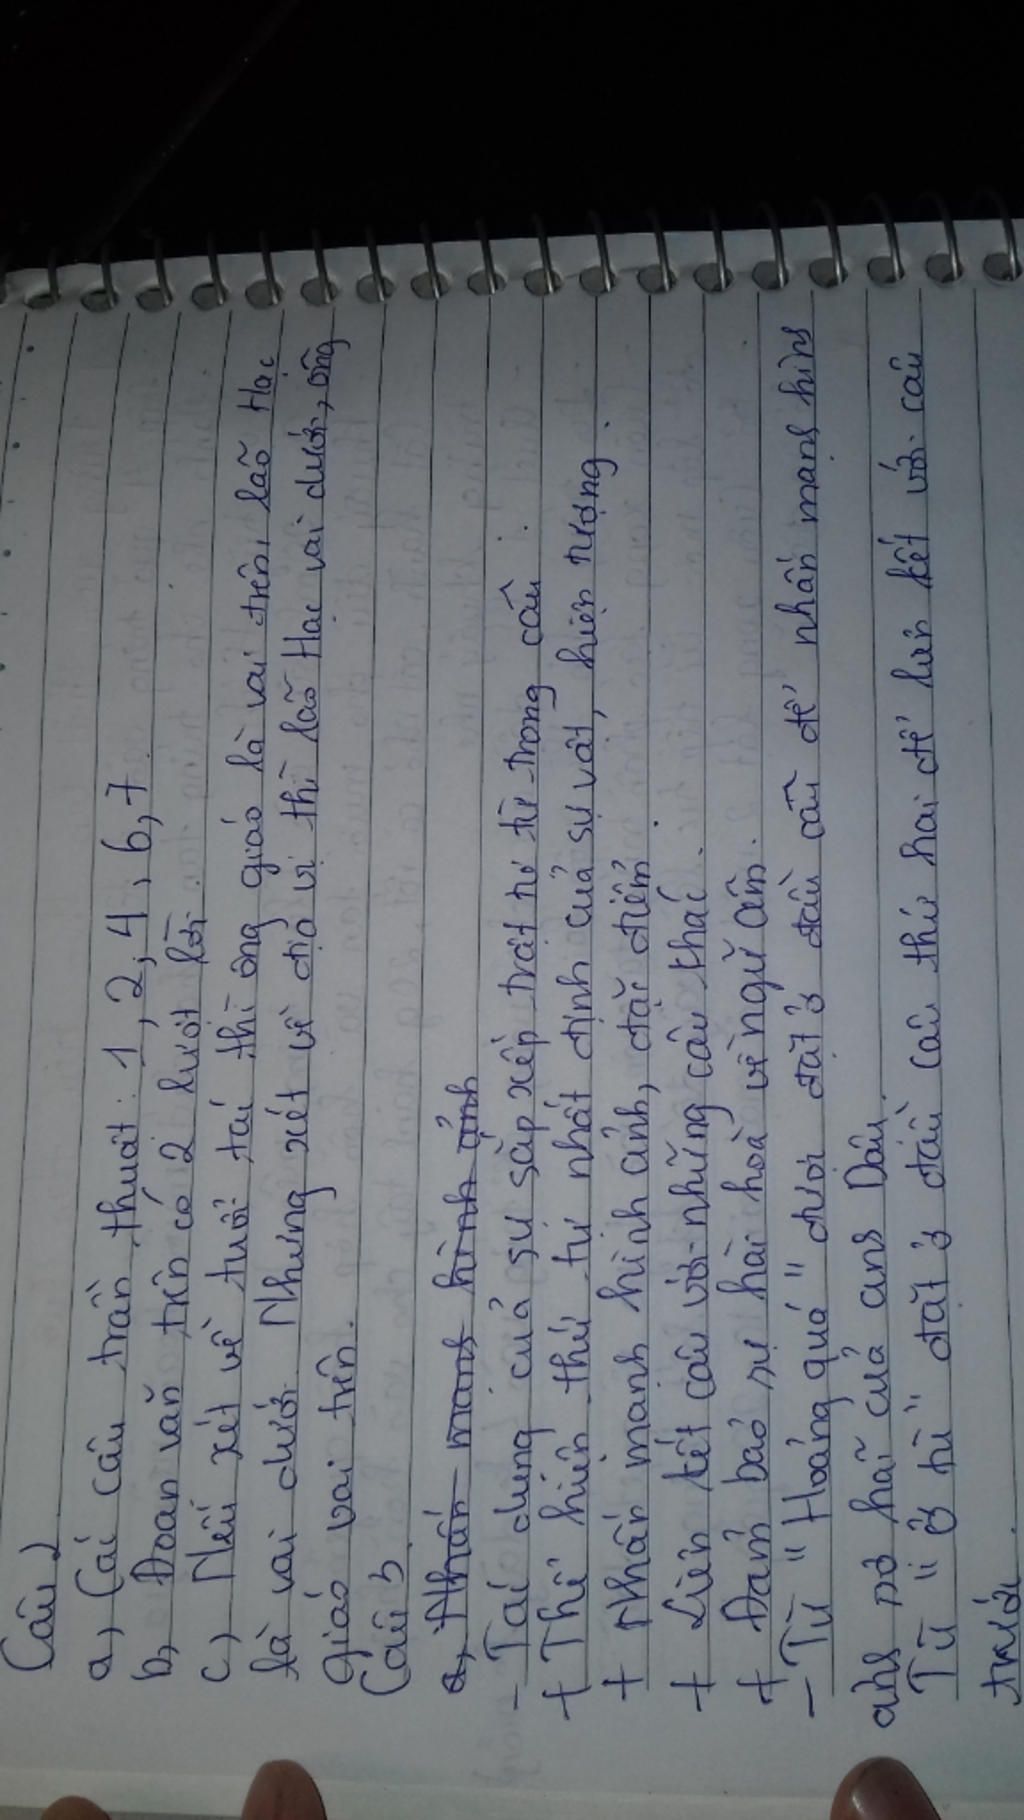 Câu 2
a, Các câu trần thuật: 1, 2, 4, 6, 7
b, Đoạn văn trên có 2 lượt lời.
c) Nếu xét về tuổi tác thì ông giáo là vai trên, lão Hạc
là vai dưới. Nhưng xét về địa vị thì lão Hạc vai dưới, ông
giáo vai trên.
Câu 3
a, Nhấn mạnh hình ảnh
- Tác dụng của sự sắp xếp trật tự từ trong câu
+ Thể hiện thứ tự nhất định của sự vật, hiện tượng.
+ Nhấn mạnh hình ảnh, đặc điểm
+ Liên kết câu với những câu khác.
+ Đảm bảo sự hài hoà về ngữ âm.
- Từ "Hoảng quá" được đặt ở đầu câu để nhấn mạnh hình
ảnh sợ hãi của anh Dậu.
Từ "ở tù" đặt ở đầu câu thứ hai để liên kết với câu
trước.